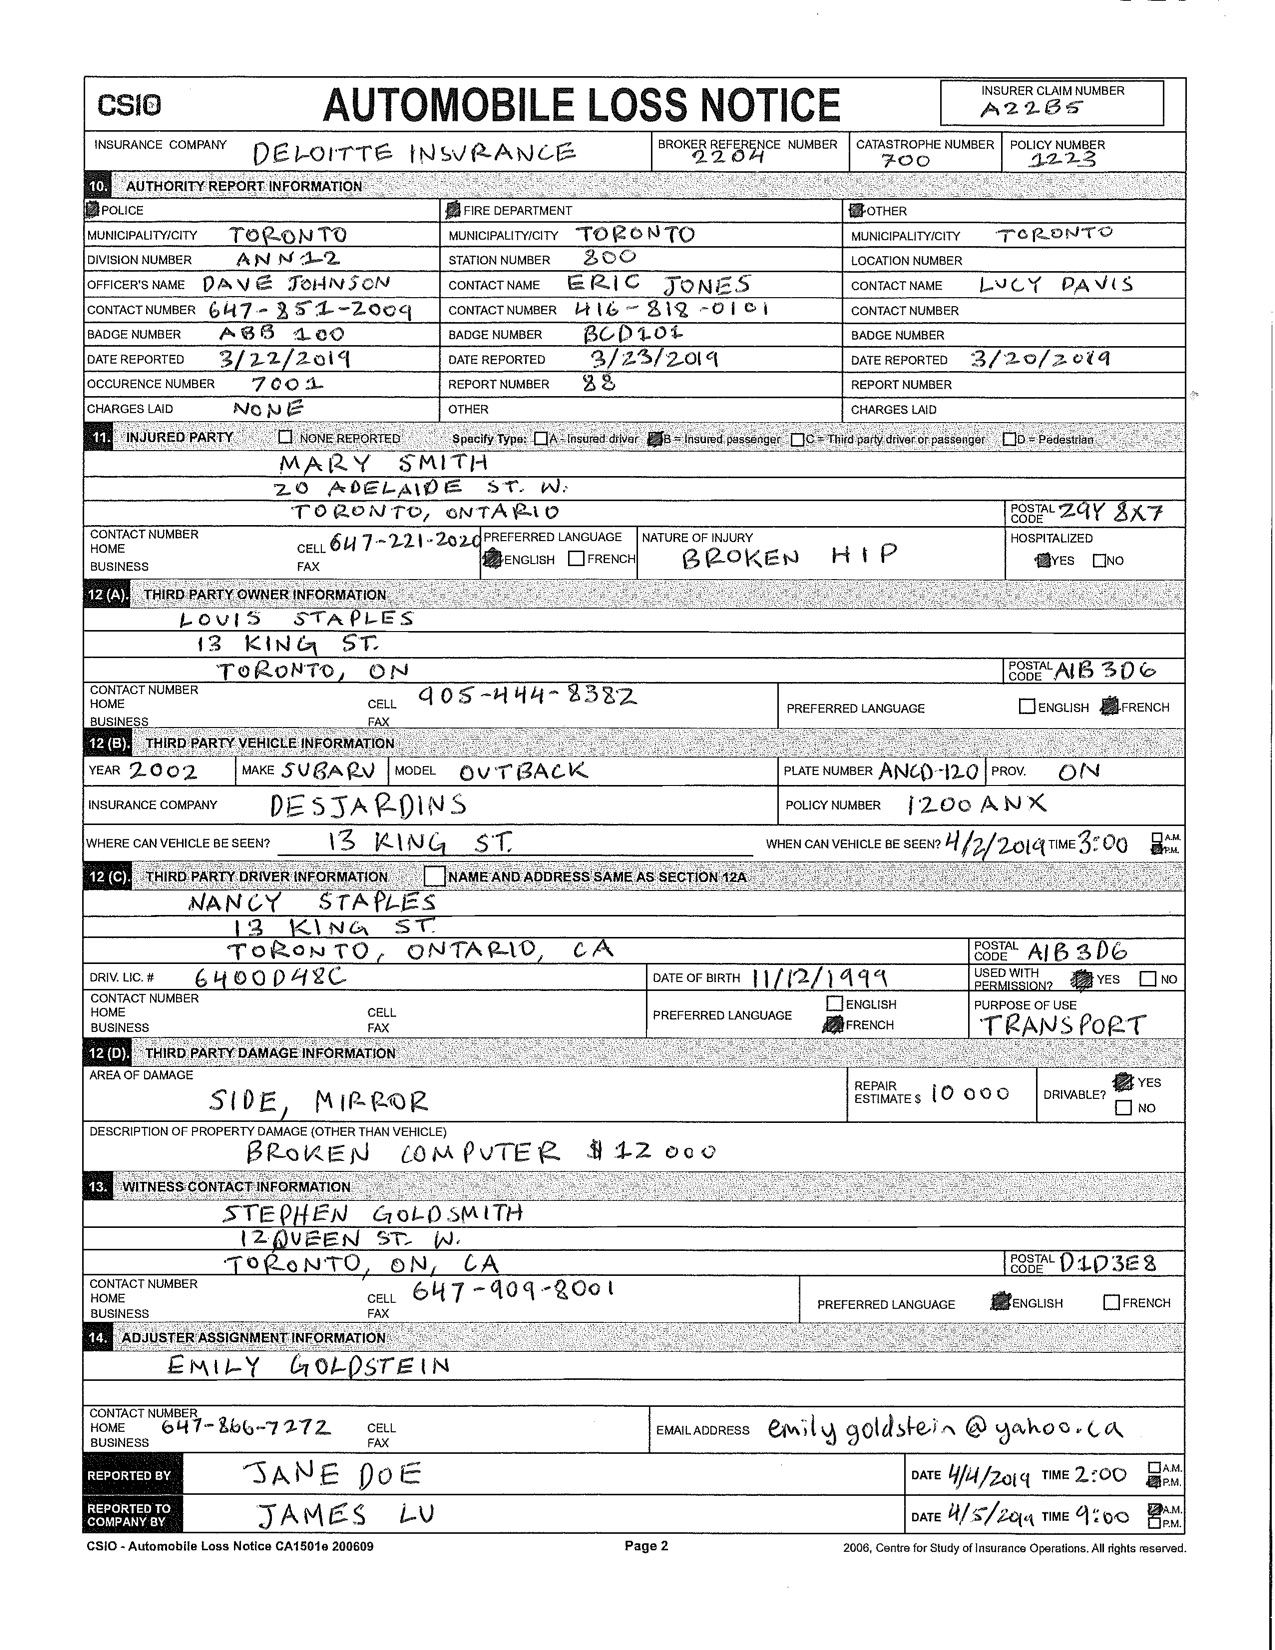 CSIO AUTOMOBILE LOSS NOTICE INSURER CLAIM NUMBER
A22B5
INSURANCE COMPANY DELOITTE INSURANCE BROKER REFERENCE NUMBER 2204 CATASTROPHE NUMBER 700 POLICY NUMBER 1223
10. AUTHORITY REPORT INFORMATION
POLICE FIRE DEPARTMENT OTHER
MUNICIPALITY/CITY TORONTO MUNICIPALITY/CITY TORONTO MUNICIPALITY/CITY TORONTO
DIVISION NUMBER ANN12 STATION NUMBER 800 LOCATION NUMBER
OFFICER'S NAME DAVE JOHNSON CONTACT NAME ERIC JONES CONTACT NAME LUCY DAVIS
CONTACT NUMBER 647-851-2009 CONTACT NUMBER 416-818-0101 CONTACT NUMBER
BADGE NUMBER ABB 100 BADGE NUMBER BCD101 BADGE NUMBER
DATE REPORTED 3/22/2019 DATE REPORTED 3/23/2019 DATE REPORTED 3/20/2019
OCCURENCE NUMBER 7001 REPORT NUMBER 88 REPORT NUMBER
CHARGES LAID NONE OTHER CHARGES LAID
11. INJURED PARTY NONE REPORTED Specify Type: A - Insured driver B = Insured passenger C = Third party driver or passenger D = Pedestrian
MARY SMITH
20 ADELAIDE ST. W.
TORONTO, ONTARIO POSTAL CODE 29Y 8X7
CONTACT NUMBER PREFERRED LANGUAGE NATURE OF INJURY HOSPITALIZED
HOME CELL 647-221-2020 ENGLISH FRENCH BROKEN HIP YES NO
BUSINESS FAX
12 (A). THIRD PARTY OWNER INFORMATION
LOUIS STAPLES
13 KING ST.
TORONTO, ON POSTAL CODE A1B 3D6
CONTACT NUMBER
HOME CELL 905-444-8382 PREFERRED LANGUAGE ENGLISH FRENCH
BUSINESS FAX
12 (B). THIRD PARTY VEHICLE INFORMATION
YEAR 2002 MAKE SUBARU MODEL OUTBACK PLATE NUMBER ANCD-120 PROV. ON
INSURANCE COMPANY DESJARDINS POLICY NUMBER 1200ANX
WHERE CAN VEHICLE BE SEEN? 13 KING ST. WHEN CAN VEHICLE BE SEEN? 4/2/2019 TIME 3:00 A.M. P.M.
12 (C). THIRD PARTY DRIVER INFORMATION NAME AND ADDRESS SAME AS SECTION 12A
NANCY STAPLES
13 KING ST.
TORONTO, ONTARIO, CA POSTAL CODE A1B 3D6
DRIV. LIC. # 6400D48C DATE OF BIRTH 11/12/1999 USED WITH PERMISSION? YES NO
CONTACT NUMBER ENGLISH PURPOSE OF USE
HOME CELL PREFERRED LANGUAGE TRANSPORT
BUSINESS FAX FRENCH
12 (D). THIRD PARTY DAMAGE INFORMATION
AREA OF DAMAGE SIDE, MIRROR REPAIR ESTIMATE $ 10 000 DRIVABLE? YES NO
DESCRIPTION OF PROPERTY DAMAGE (OTHER THAN VEHICLE)
BROKEN COMPUTER $12 000
13. WITNESS CONTACT INFORMATION
STEPHEN GOLDSMITH
12 QUEEN ST. W.
TORONTO, ON, CA POSTAL CODE D1D3E8
CONTACT NUMBER
HOME CELL 647-909-8001 PREFERRED LANGUAGE ENGLISH FRENCH
BUSINESS FAX
14. ADJUSTER ASSIGNMENT INFORMATION
EMILY GOLDSTEIN
CONTACT NUMBER
HOME 647-866-7272 CELL EMAIL ADDRESS emily goldstein@yahoo.ca
BUSINESS FAX
REPORTED BY JANE DOE DATE 4/4/2019 TIME 2:00 A.M. P.M.
REPORTED TO COMPANY BY JAMES LU DATE 4/5/2019 TIME 9:00 A.M. P.M.
CSIO - Automobile Loss Notice CA1501e 200609 Page 2 2006, Centre for Study of Insurance Operations. All rights reserved.